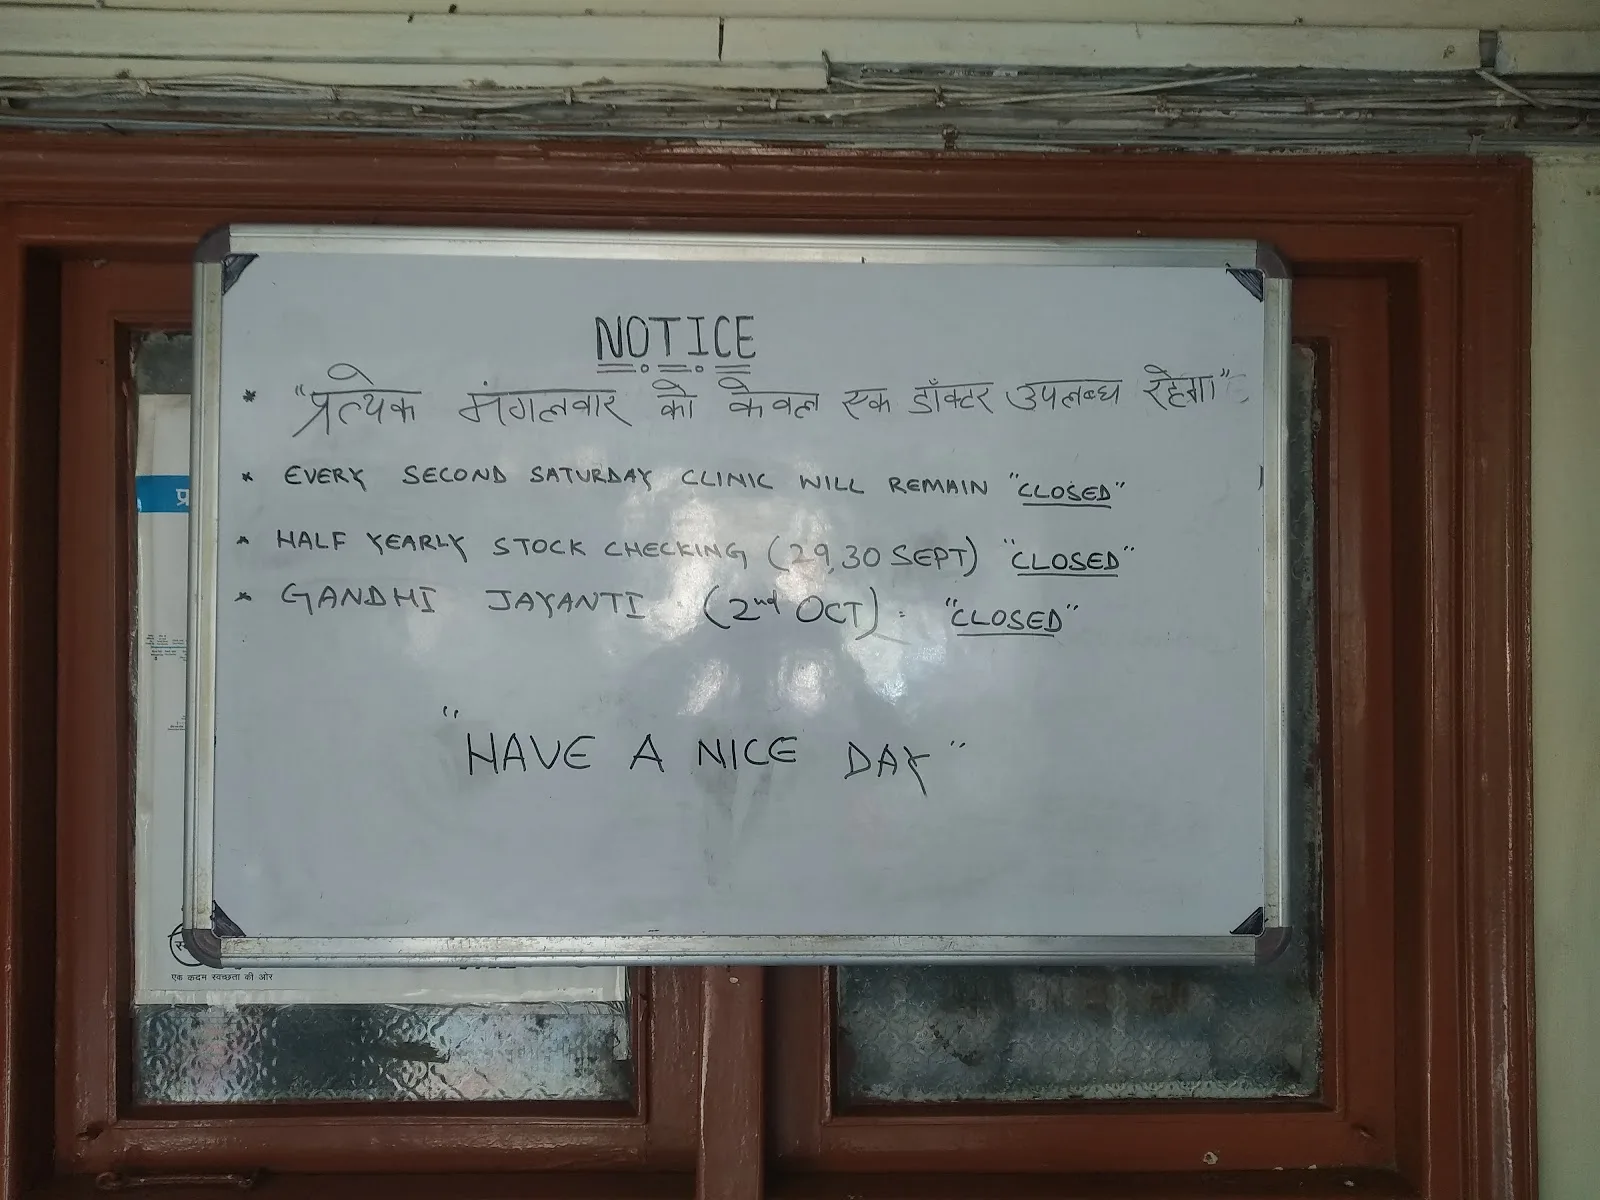 NOTICE
* "प्रत्येक मंगलवार को केवल एक डॉक्टर उपलब्ध रहेगा"
* EVERY SECOND SATURDAY CLINIC WILL REMAIN "CLOSED"
* HALF YEARLY STOCK CHECKING (29,30 SEPT) "CLOSED"
* GANDHI JAYANTI (2nd OCT) : "CLOSED"
"HAVE A NICE DAY"
प्र
एक कदम स्वच्छता की ओर